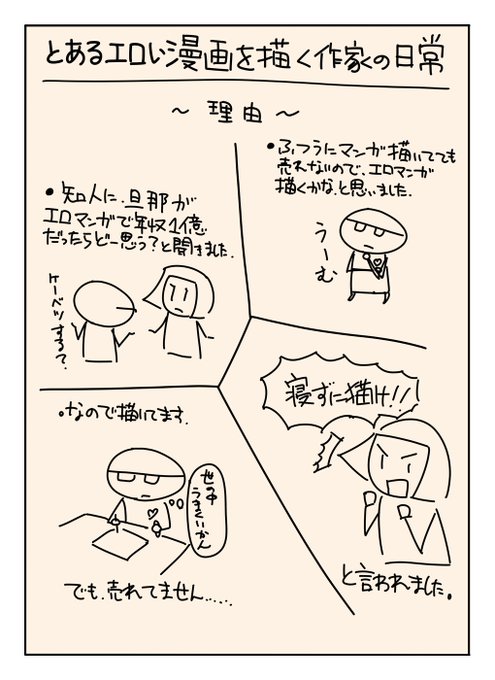 とあるエロい漫画を描く作家の日常
～理由～
・ふつうにマンガ描いてても
売れないので、エロマンガ
描くかな、と思いました。
うーむ
・知人に、旦那が
エロマンガで年収1億
だったらどー思う?と聞きました。
ケーベツする?
寝ずに描け!!
と言われました。
・なので描いてます。
世の中
うまくいかん
でも、売れてません.....